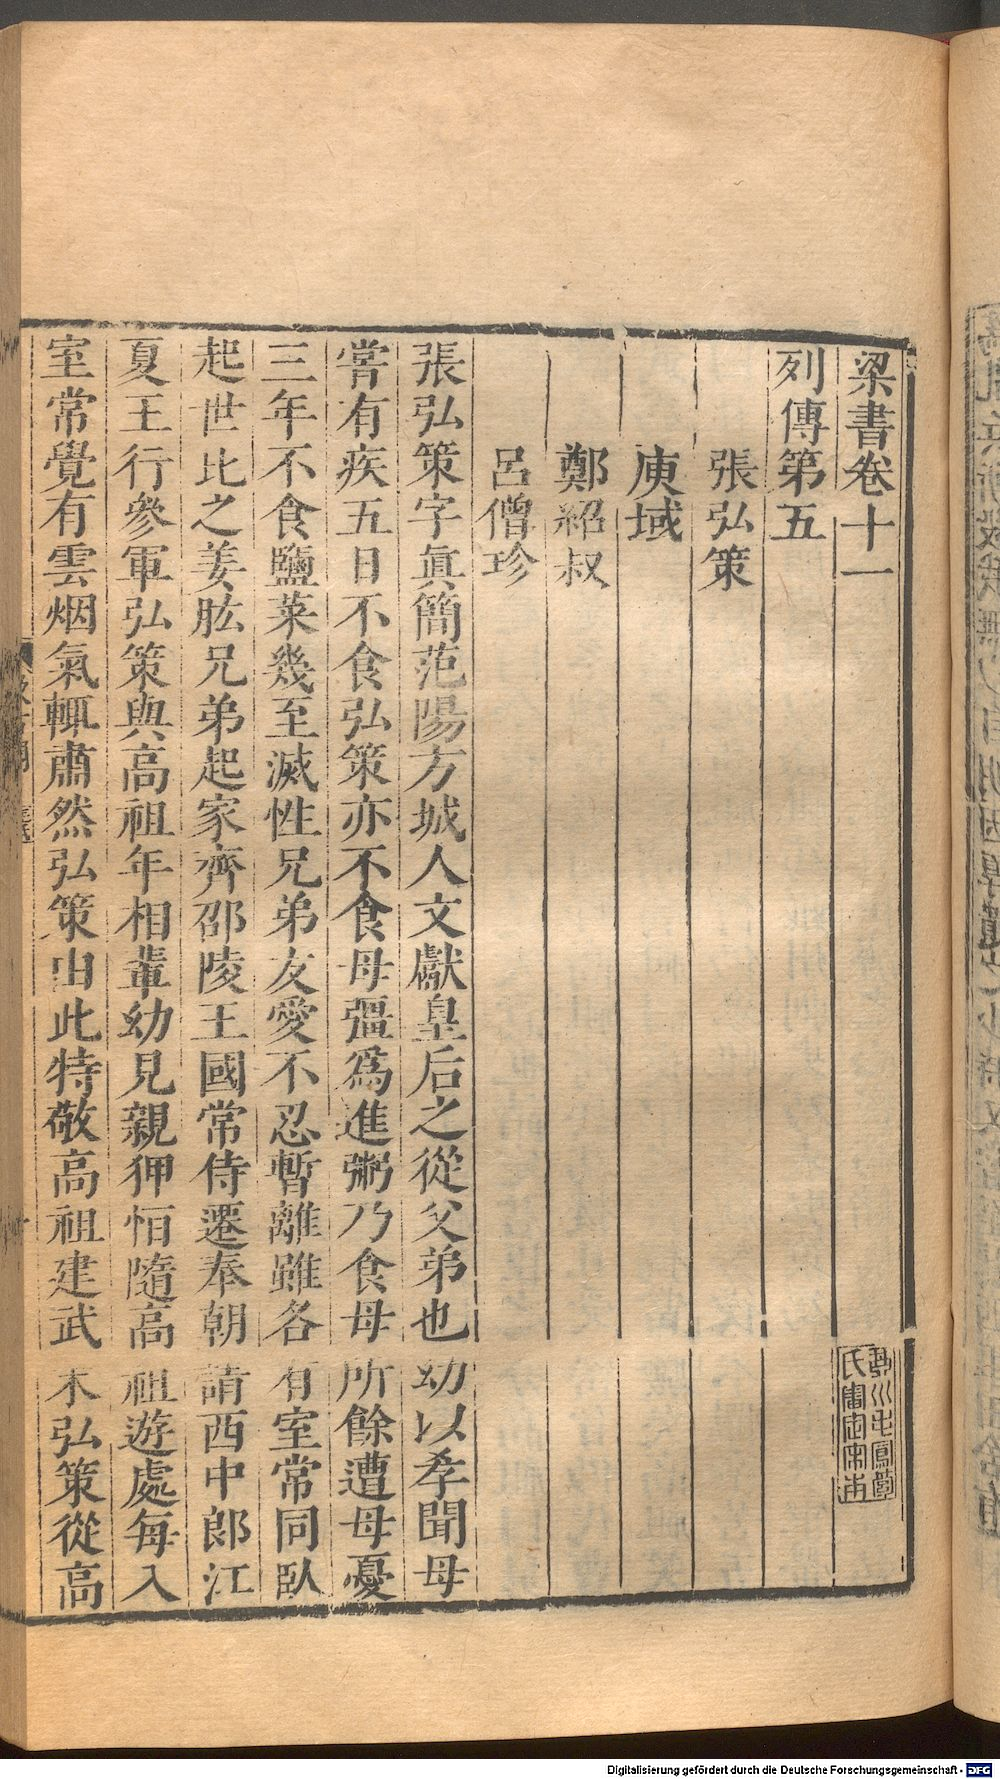 梁書卷十一
列傳第五
張弘策
庾域
鄭紹叔
呂僧珍
張弘策字眞簡范陽方城人文獻皇后之從父弟也幼以孝聞母
嘗有疾五日不食弘策亦不食母彊爲進粥乃食母所餘遭母憂
三年不食鹽菜幾至滅性兄弟友愛不忍暫離雖各有室常同臥
起世比之姜肱兄弟起家齊邵陵王國常侍遷奉朝請西中郎江
夏王行參軍弘策與高祖年相輩幼見親狎恒隨高祖遊處每入
室常覺有雲烟氣輒肅然弘策由此特敬高祖建武末弘策從高
Digitalisierung gefördert durch die Deutsche Forschungsgemeinschaft - DFG